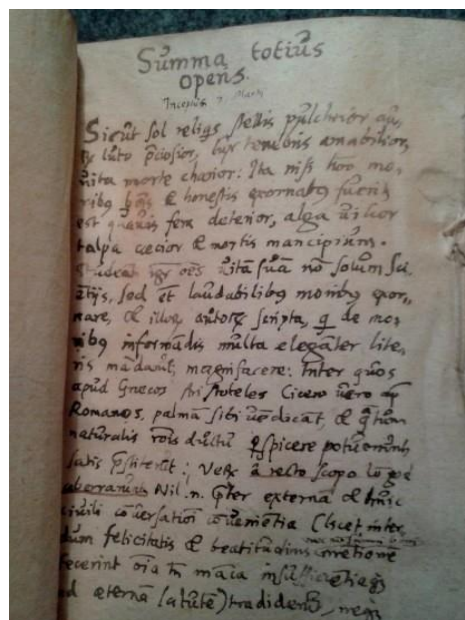 Summa totius
operis.
Inceptus 7. Martii
Sicut sol reliqs stellis pulchrior, au,
luto p̄ciosior, lux tenebris amabilior,
uita morte charior: Ita nisi homo mo,
ribq bonis & honestis exornatq fuerit
est quauis fera deterior, alga uilior
talpa cæcior & mortis mancipium.
Studeat igr̄ oēs uitā suā nō solum sci,
ētijs, sed et laudabilibq moribq exor,
nare, & illorum autorū scripta, q̄ de mo,
ribq informādis multa elegāter lite,
ris mādarūt, magnifacere: Inter quos
apud Græcos Aristoteles Cicero uero ap̄
Romanos, palmā sibi uēdicāt, & q̄tum
naturalis rōis ductu p̄spicere potuerunt
satis p̄stiterūt: Verū à recto scopo longe
aberrarunt. Nil .n. p̄ter externā & huic
ciuili cōuersationi cōuenientia licet inter,
dum felicitatis & beatitudinis mentionē
fecerint oīa tn̄ māca insufficiētiaq
ad æternā salutē tradiderūt, neqz